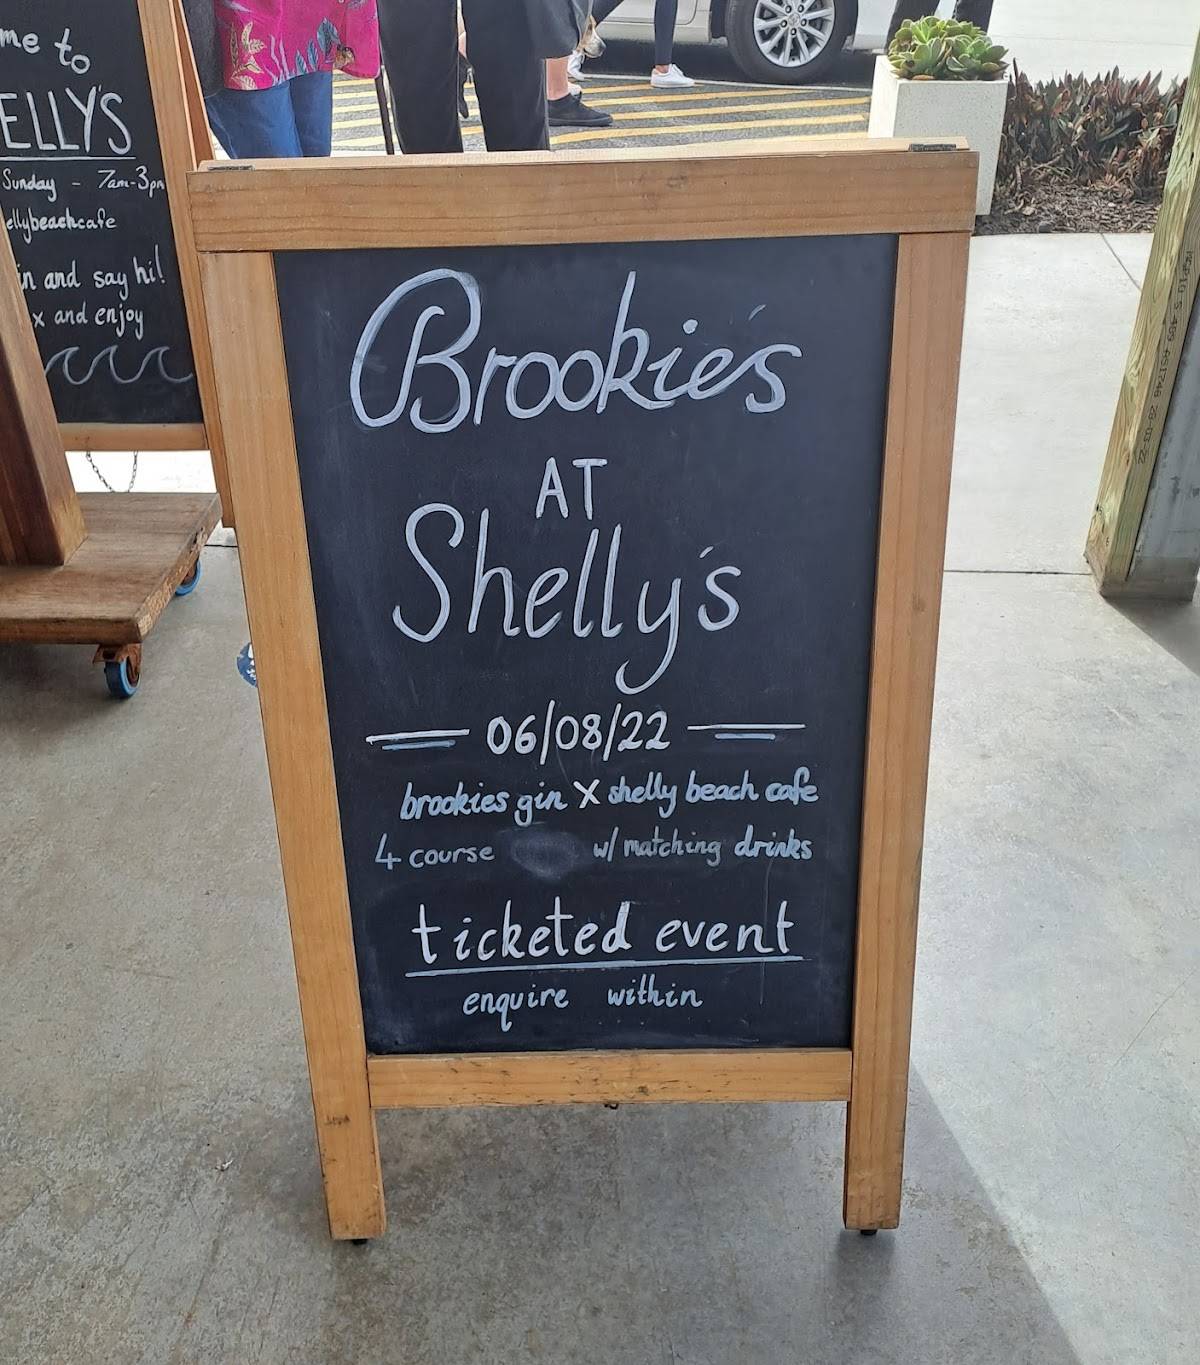 me to
ELLY'S
Sunday - 7am-3pm
ellybeachcafe
in and say hi!
x and enjoy
Brookie's
AT
Shelly's
06/08/22
brookies gin X shelly beach cafe
4 course w/ matching drinks
ticketed event
enquire within